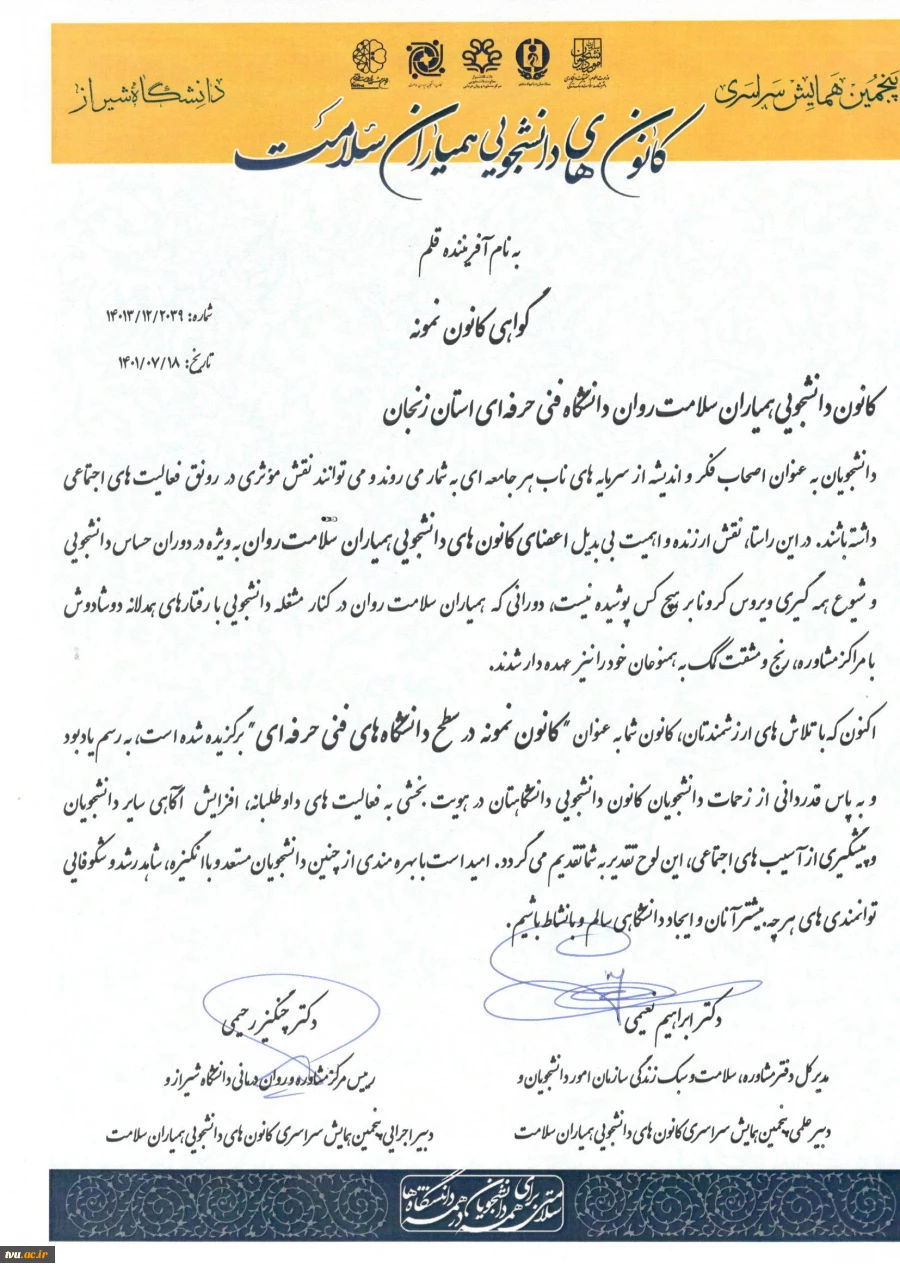 پنجمین همایش سراسری
کانون های دانشجویی همیاران سلامت
دانشگاه شیراز
به نام آفریننده قلم
گواهی کانون نمونه
شماره: ۱۴۰۱۳/۱۲/۲۰۳۹
تاریخ: ۱۴۰۱/۰۷/۱۸
کانون دانشجویی همیاران سلامت روان دانشگاه فنی حرفه ای استان زنجان
دانشجویان به عنوان اصحاب فکر و اندیشه از سرمایه های ناب هر جامعه ای به شمار می روند و می توانند نقش مؤثری در رونق فعالیت های اجتماعی
داشته باشند. در این راستا، نقش ارزنده و اهمیت بی بدیل اعضای کانون های دانشجویی همیاران سلامت روان به ویژه در دوران حساس دانشجویی
و شیوع همه گیری ویروس کرونا بر هیچ کس پوشیده نیست، دورانی که همیاران سلامت روان در کنار مشغله دانشجویی با رفتارهای همدلانه دوشادوش
با مراکز مشاوره، رنج و مشقت کمک به همنوعان خود را نیز عهده دار شدند.
اکنون که با تلاش های ارزشمندتان، کانون شما به عنوان "کانون نمونه در سطح دانشگاه های فنی حرفه ای" برگزیده شده است، به رسم یادبود
و به پاس قدردانی از زحمات دانشجویان کانون دانشجویی دانشگاهتان در هویت بخشی به فعالیت های داوطلبانه، افزایش آگاهی سایر دانشجویان
و پیشگیری از آسیب های اجتماعی، این لوح تقدیر به شما تقدیم می گردد. امید است با بهره مندی از چنین دانشجویان مستعد و با انگیزه، شاهد رشد و شکوفایی
توانمندی های هر چه بیشتر آنان و ایجاد دانشگاهی سالم و بانشاط باشیم.
دکتر ابراهیم نعیمی
مدیر کل دفتر مشاوره، سلامت و سبک زندگی سازمان امور دانشجویان و
دبیر علمی پنجمین همایش سراسری کانون های دانشجویی همیاران سلامت
دکتر چنگیز رحیمی
رییس مرکز مشاوره و روان درمانی دانشگاه شیراز و
دبیر اجرایی پنجمین همایش سراسری کانون های دانشجویی همیاران سلامت
سلامتی برای همه دانشجویان در همه دانشگاه ها
tvu.ac.ir